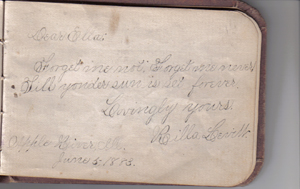 Dear Ella:
Forget me not, Forget me never
Till yonder sun is set forever.
Lovingly yours,
Apple River
June 5